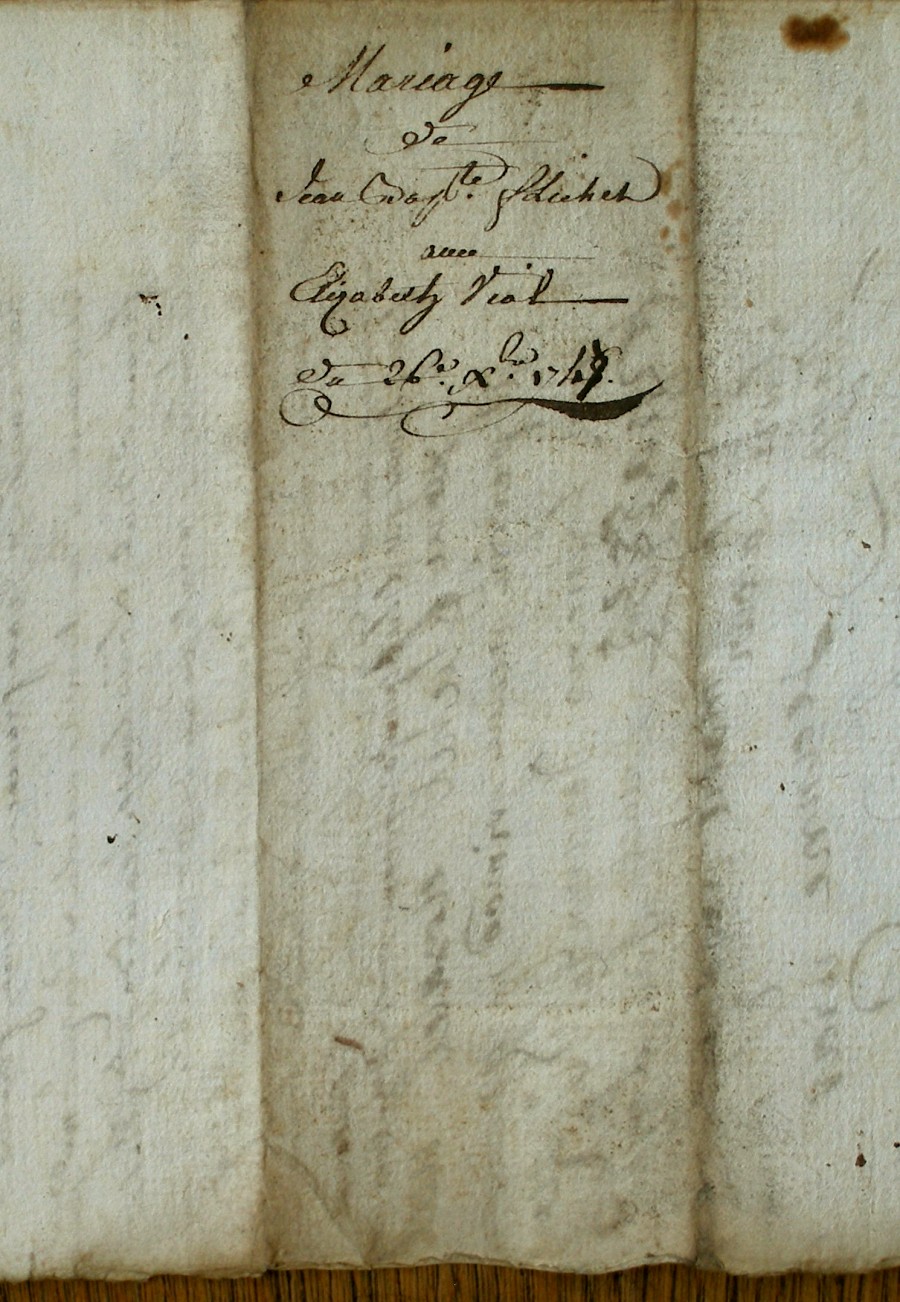 Mariage
de
Jean Bap.te Richet
avec
Elizabeth Vial
Du 26.e x.bre